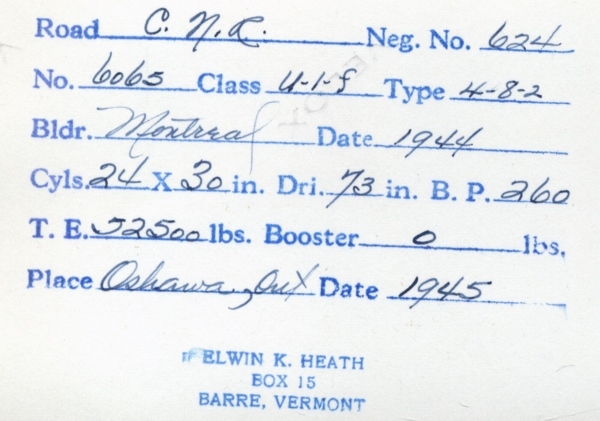 Road C. N. R. Neg. No. 624
No. 6065 Class U-1-f Type 4-8-2
Bldr. Montreal Date 1944
Cyls. 24 X 30 in. Dri. 73 in. B. P. 260
T. E. 52500 lbs. Booster 0 lbs.
Place Oshawa, Ont Date 1945
ELWIN K. HEATH
BOX 15
BARRE, VERMONT